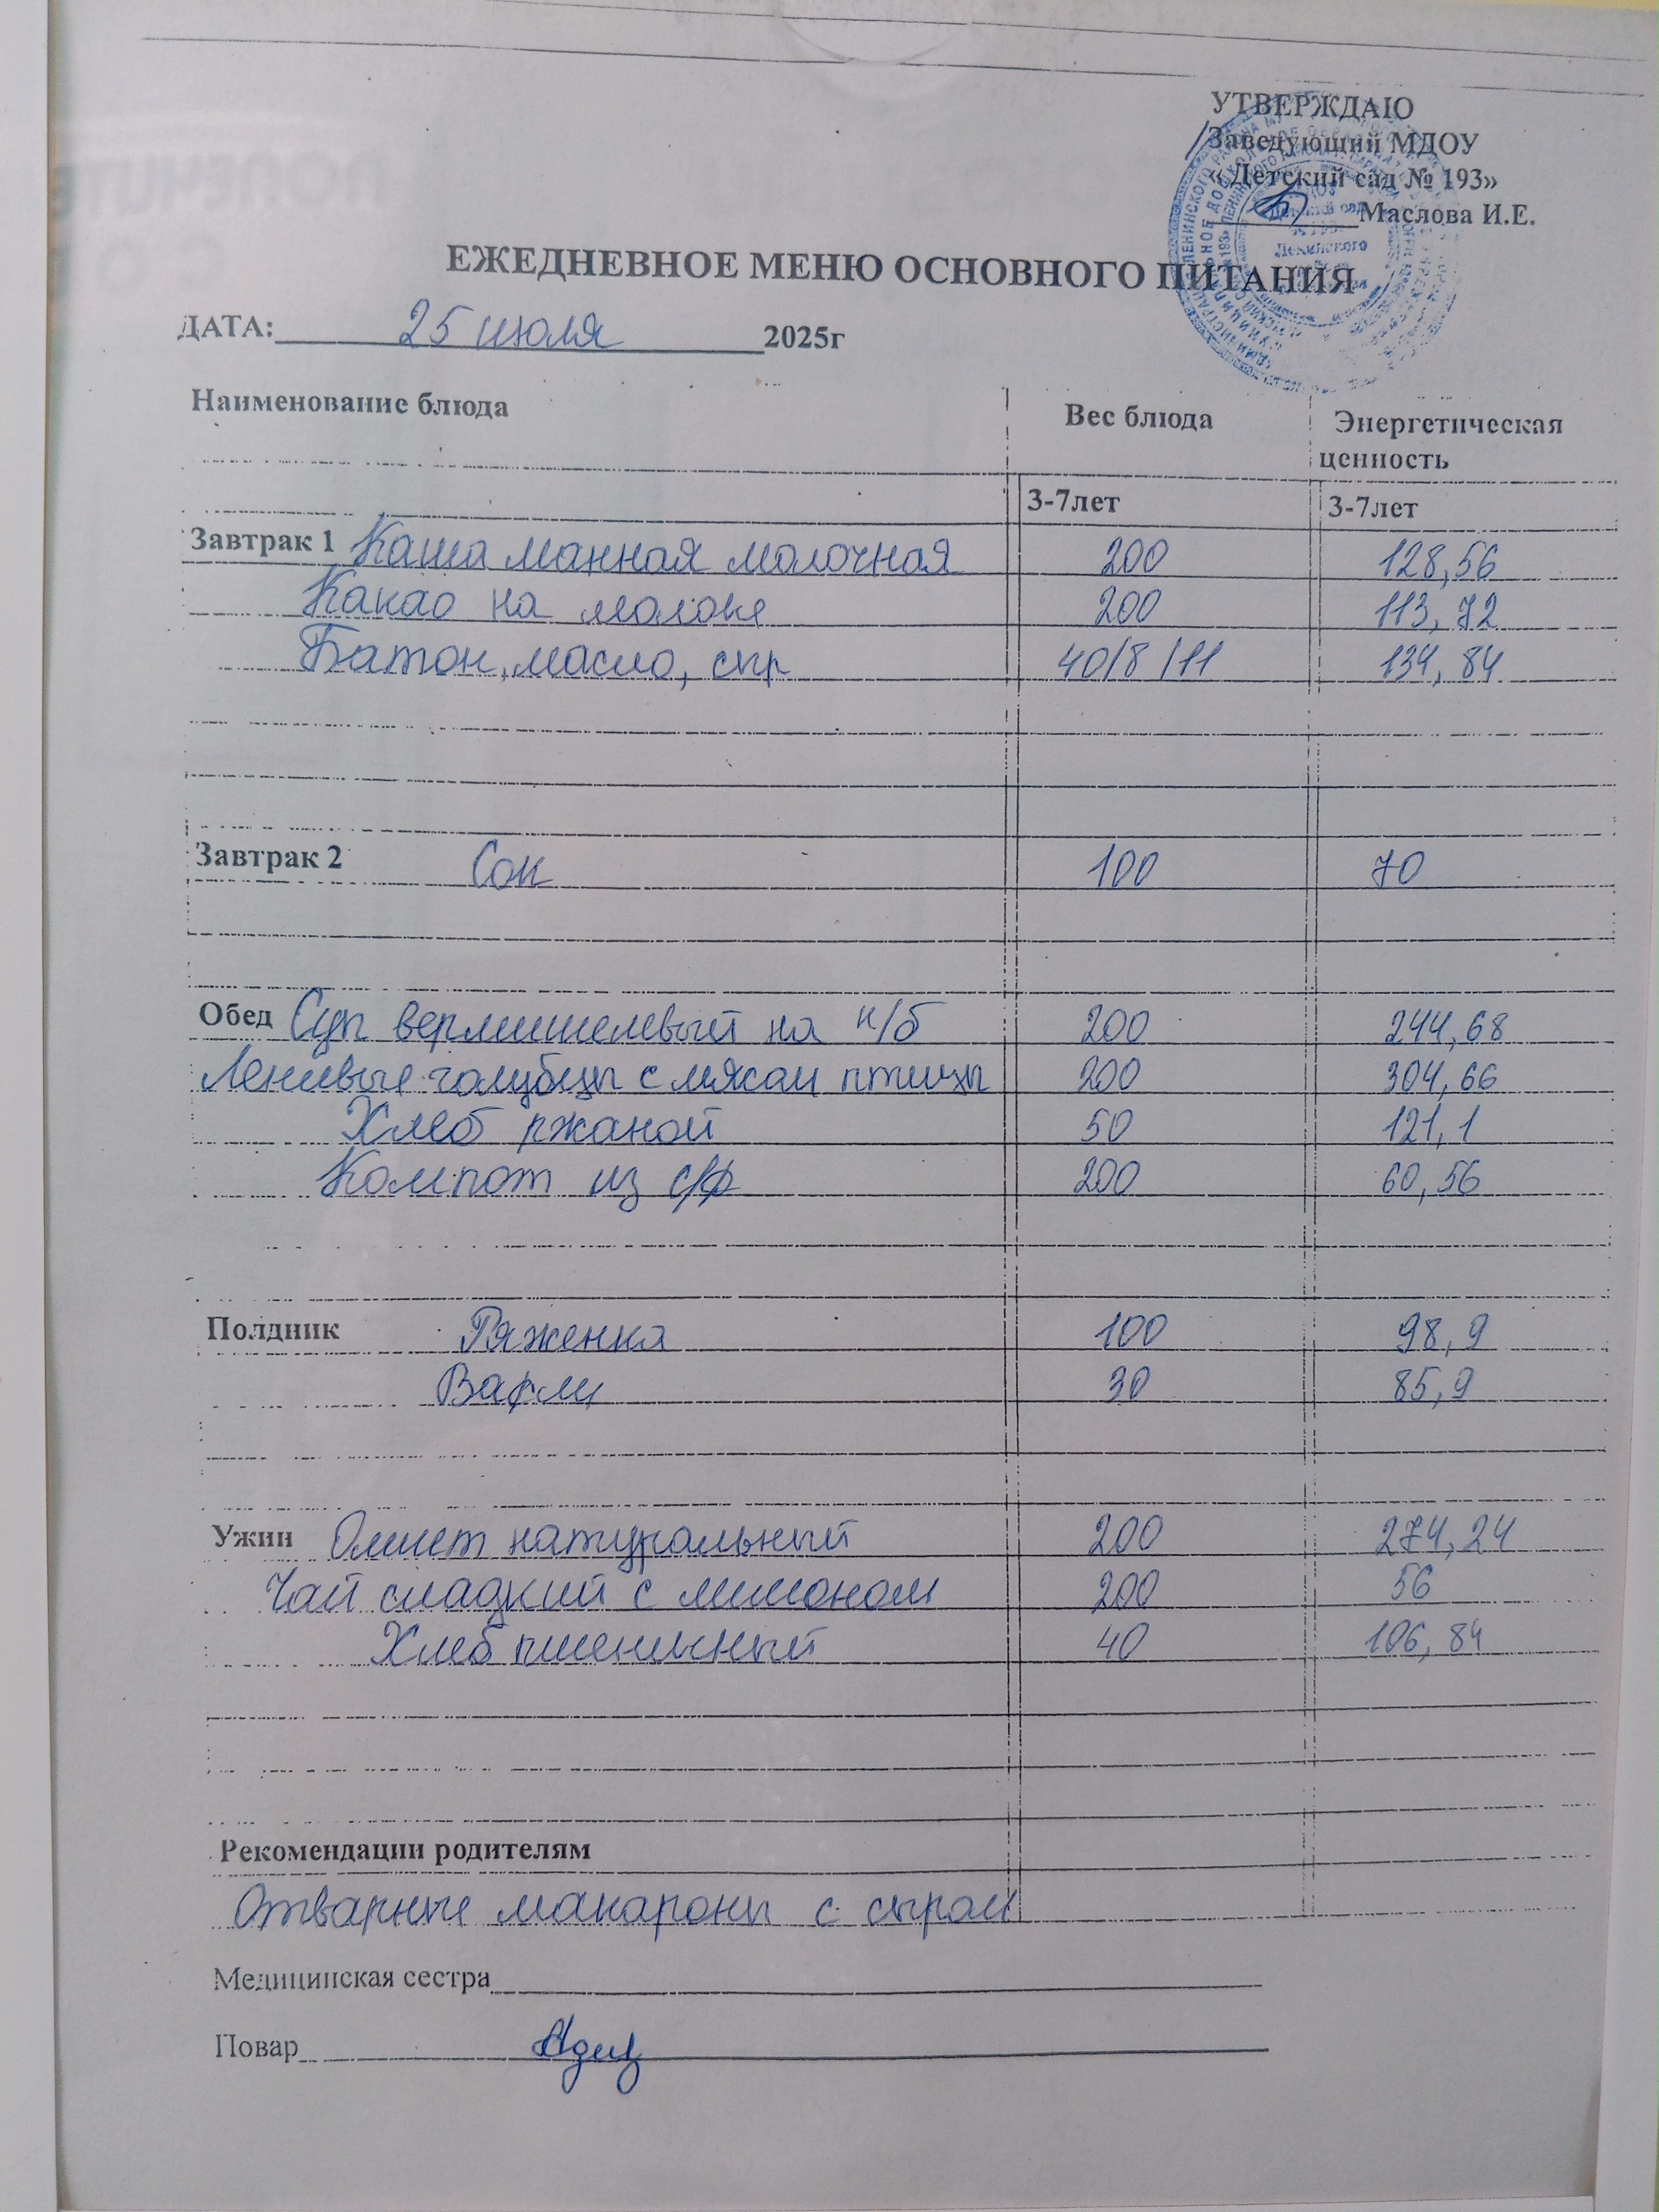 УТВЕРЖДАЮ
Заведующий МДОУ
«Детский сад № 193»
Маслова И.Е.
ЕЖЕДНЕВНОЕ МЕНЮ ОСНОВНОГО ПИТАНИЯ
ДАТА: 25 июля 2025г
Наименование блюда Вес блюда Энергетическая ценность
3-7лет 3-7лет
Завтрак 1 Каша манная молочная 200 128,56
Какао на молоке 200 113,72
Батон, масло, сыр 40/8/11 134,84
Завтрак 2 Сок 100 70
Обед Суп вермишелевый на к/б 200 244,68
Ленивые голубцы с мясом птицы 200 304,66
Хлеб ржаной 50 121,1
Компот из с/ф 200 60,56
Полдник Ряженка 100 98,9
Вафли 30 85,9
Ужин Омлет натуральный 200 274,24
Чай сладкий с лимоном 200 56
Хлеб пшеничный 40 106,84
Рекомендации родителям
Отварные макароны с сыром
Медицинская сестра
Повар